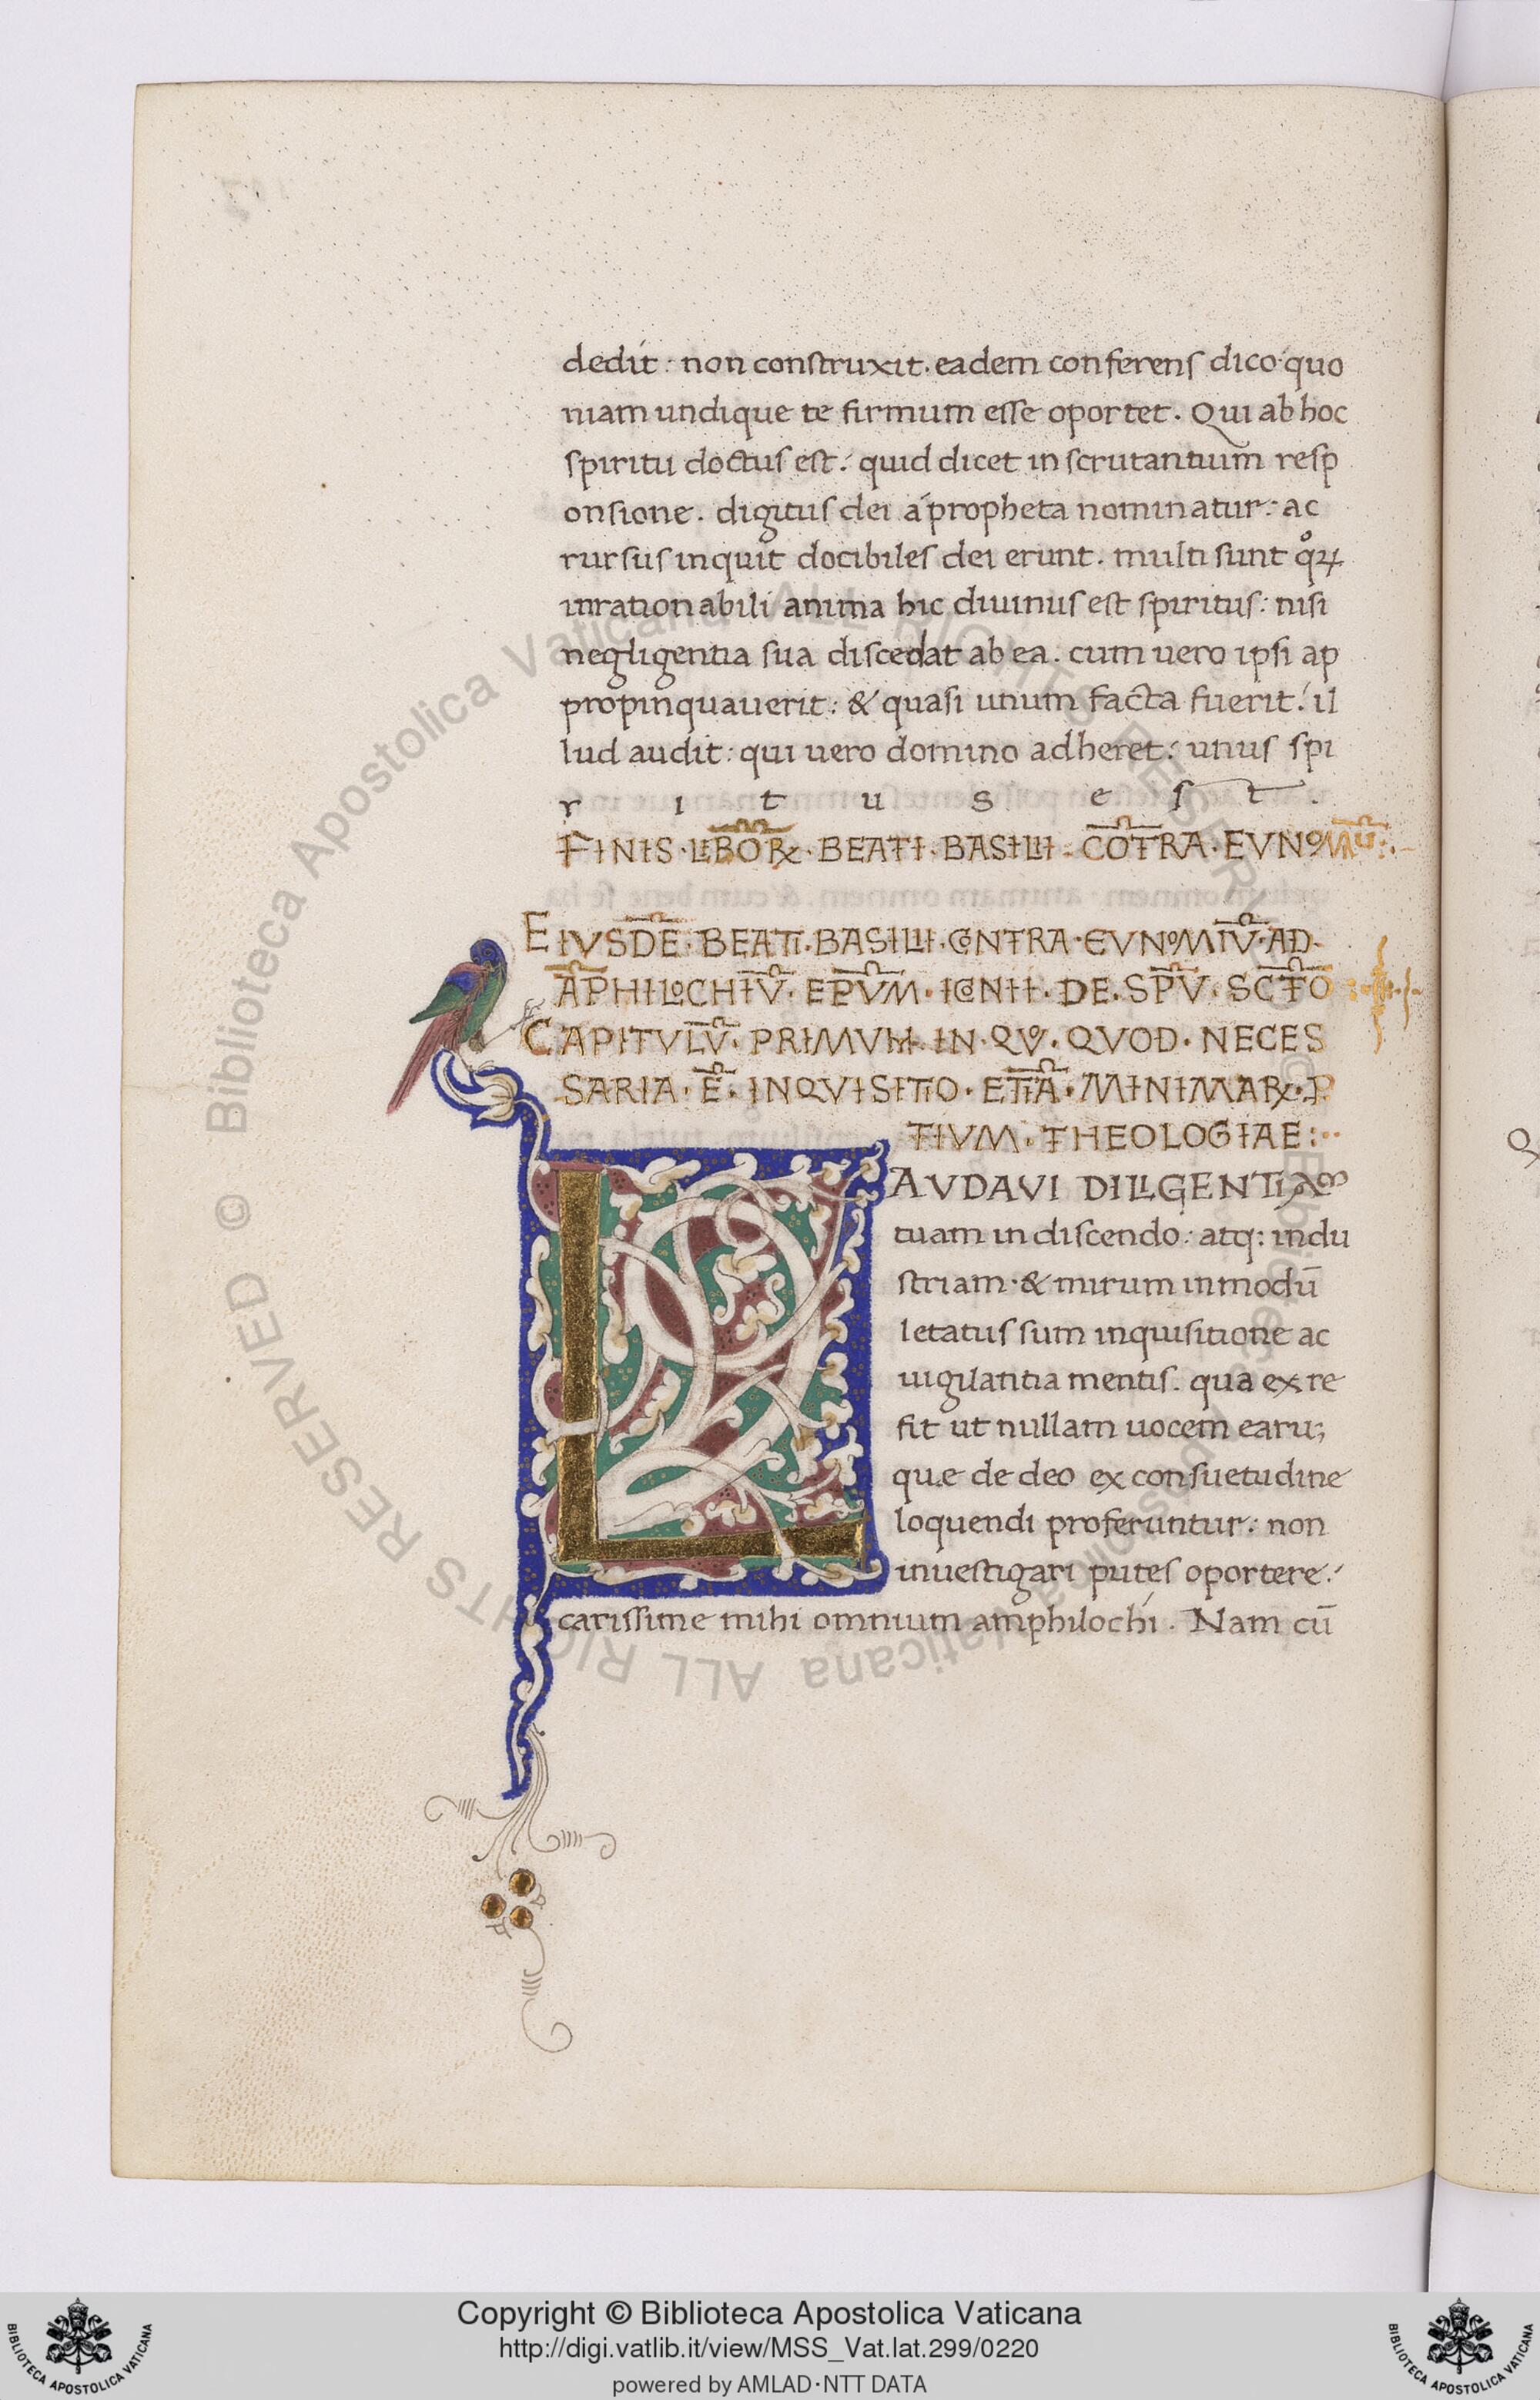 dedit: non construxit. eadem conferens dico. quo
niam undique te firmum esse oportet. Qui ab hoc
spiritu doctus est: quid dicet in scrutantium resp
onsione. digitus dei a propheta nominatur: ac
rursus inquit docibiles dei erunt. multi sunt qͦꝝ
inrationabili anima hic diuinus est spiritus: nisi
negligentia sua discedat ab ea. cum uero ipsi ap
propinquauerit: & quasi unum facta fuerit: il
lud audit: qui uero domino adheret: unus spi
r i t u s e s t .
FINIS · LIBOꝜ̅ · BEATI · BASILII · CO̅TRA · EVNOMIU̅:.
EIVSDE̅ · BEATI · BASILII · CONTRA · EVNOMIV̅ · AD ·
A̅PHILOCHIV̅ · EP̅VM · ICONII · DE · SP̅V · SC̅TO
CAPITVLV̅ · PRIMVM · IN · QVO · QVOD · NECES
SARIA · E̅ · INQVISITIO · ETIA̅ · MINIMAꝜ · P
TIVM · THEOLOGIAE:··
LAVDAVI DILIGENTIAM
tuam in discendo: atq: indu
striam · & mirum inmodū
letatus sum inquisitione ac
uigilantia mentis. qua ex re
fit ut nullam uocem earu;
quae de deo ex consuetudine
loquendi proferuntur: non
inuestigari putes oportere:
carissime mihi omnium amphilochi. Nam cū
Biblioteca Apostolica Vaticana ALL RIGHTS RESERVED ©
Copyright © Biblioteca Apostolica Vaticana
http://digi.vatlib.it/view/MSS_Vat.lat.299/0220
powered by AMLAD·NTT DATA
BIBLIOTECA APOSTOLICA VATICANA
BIBLIOTECA APOSTOLICA VATICANA